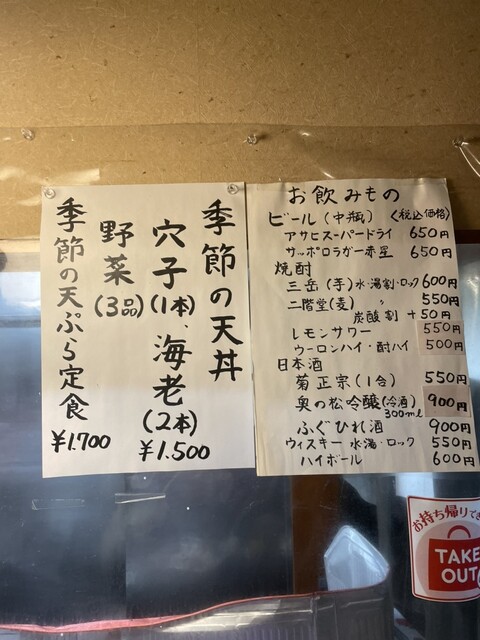 季節の天丼
穴子(1本)、海老(2本)
野菜(3品)
¥1.500
季節の天ぷら定食
¥1.700
お飲みもの
ビール(中瓶) 〈税込価格〉
アサヒスーパードライ 650円
サッポロラガー赤星 650円
焼酎
三岳(芋)水・湯割・ロック 600円
二階堂(麦) 〃 550円
炭酸割 +50円
レモンサワー 550円
ウーロンハイ・酎ハイ 500円
日本酒
菊正宗(1合) 550円
奥の松吟醸(冷酒)300ml 900円
ふぐひれ酒 900円
ウィスキー 水・湯・ロック 550円
ハイボール 600円
お持ち帰りでき
TAKE
OUT